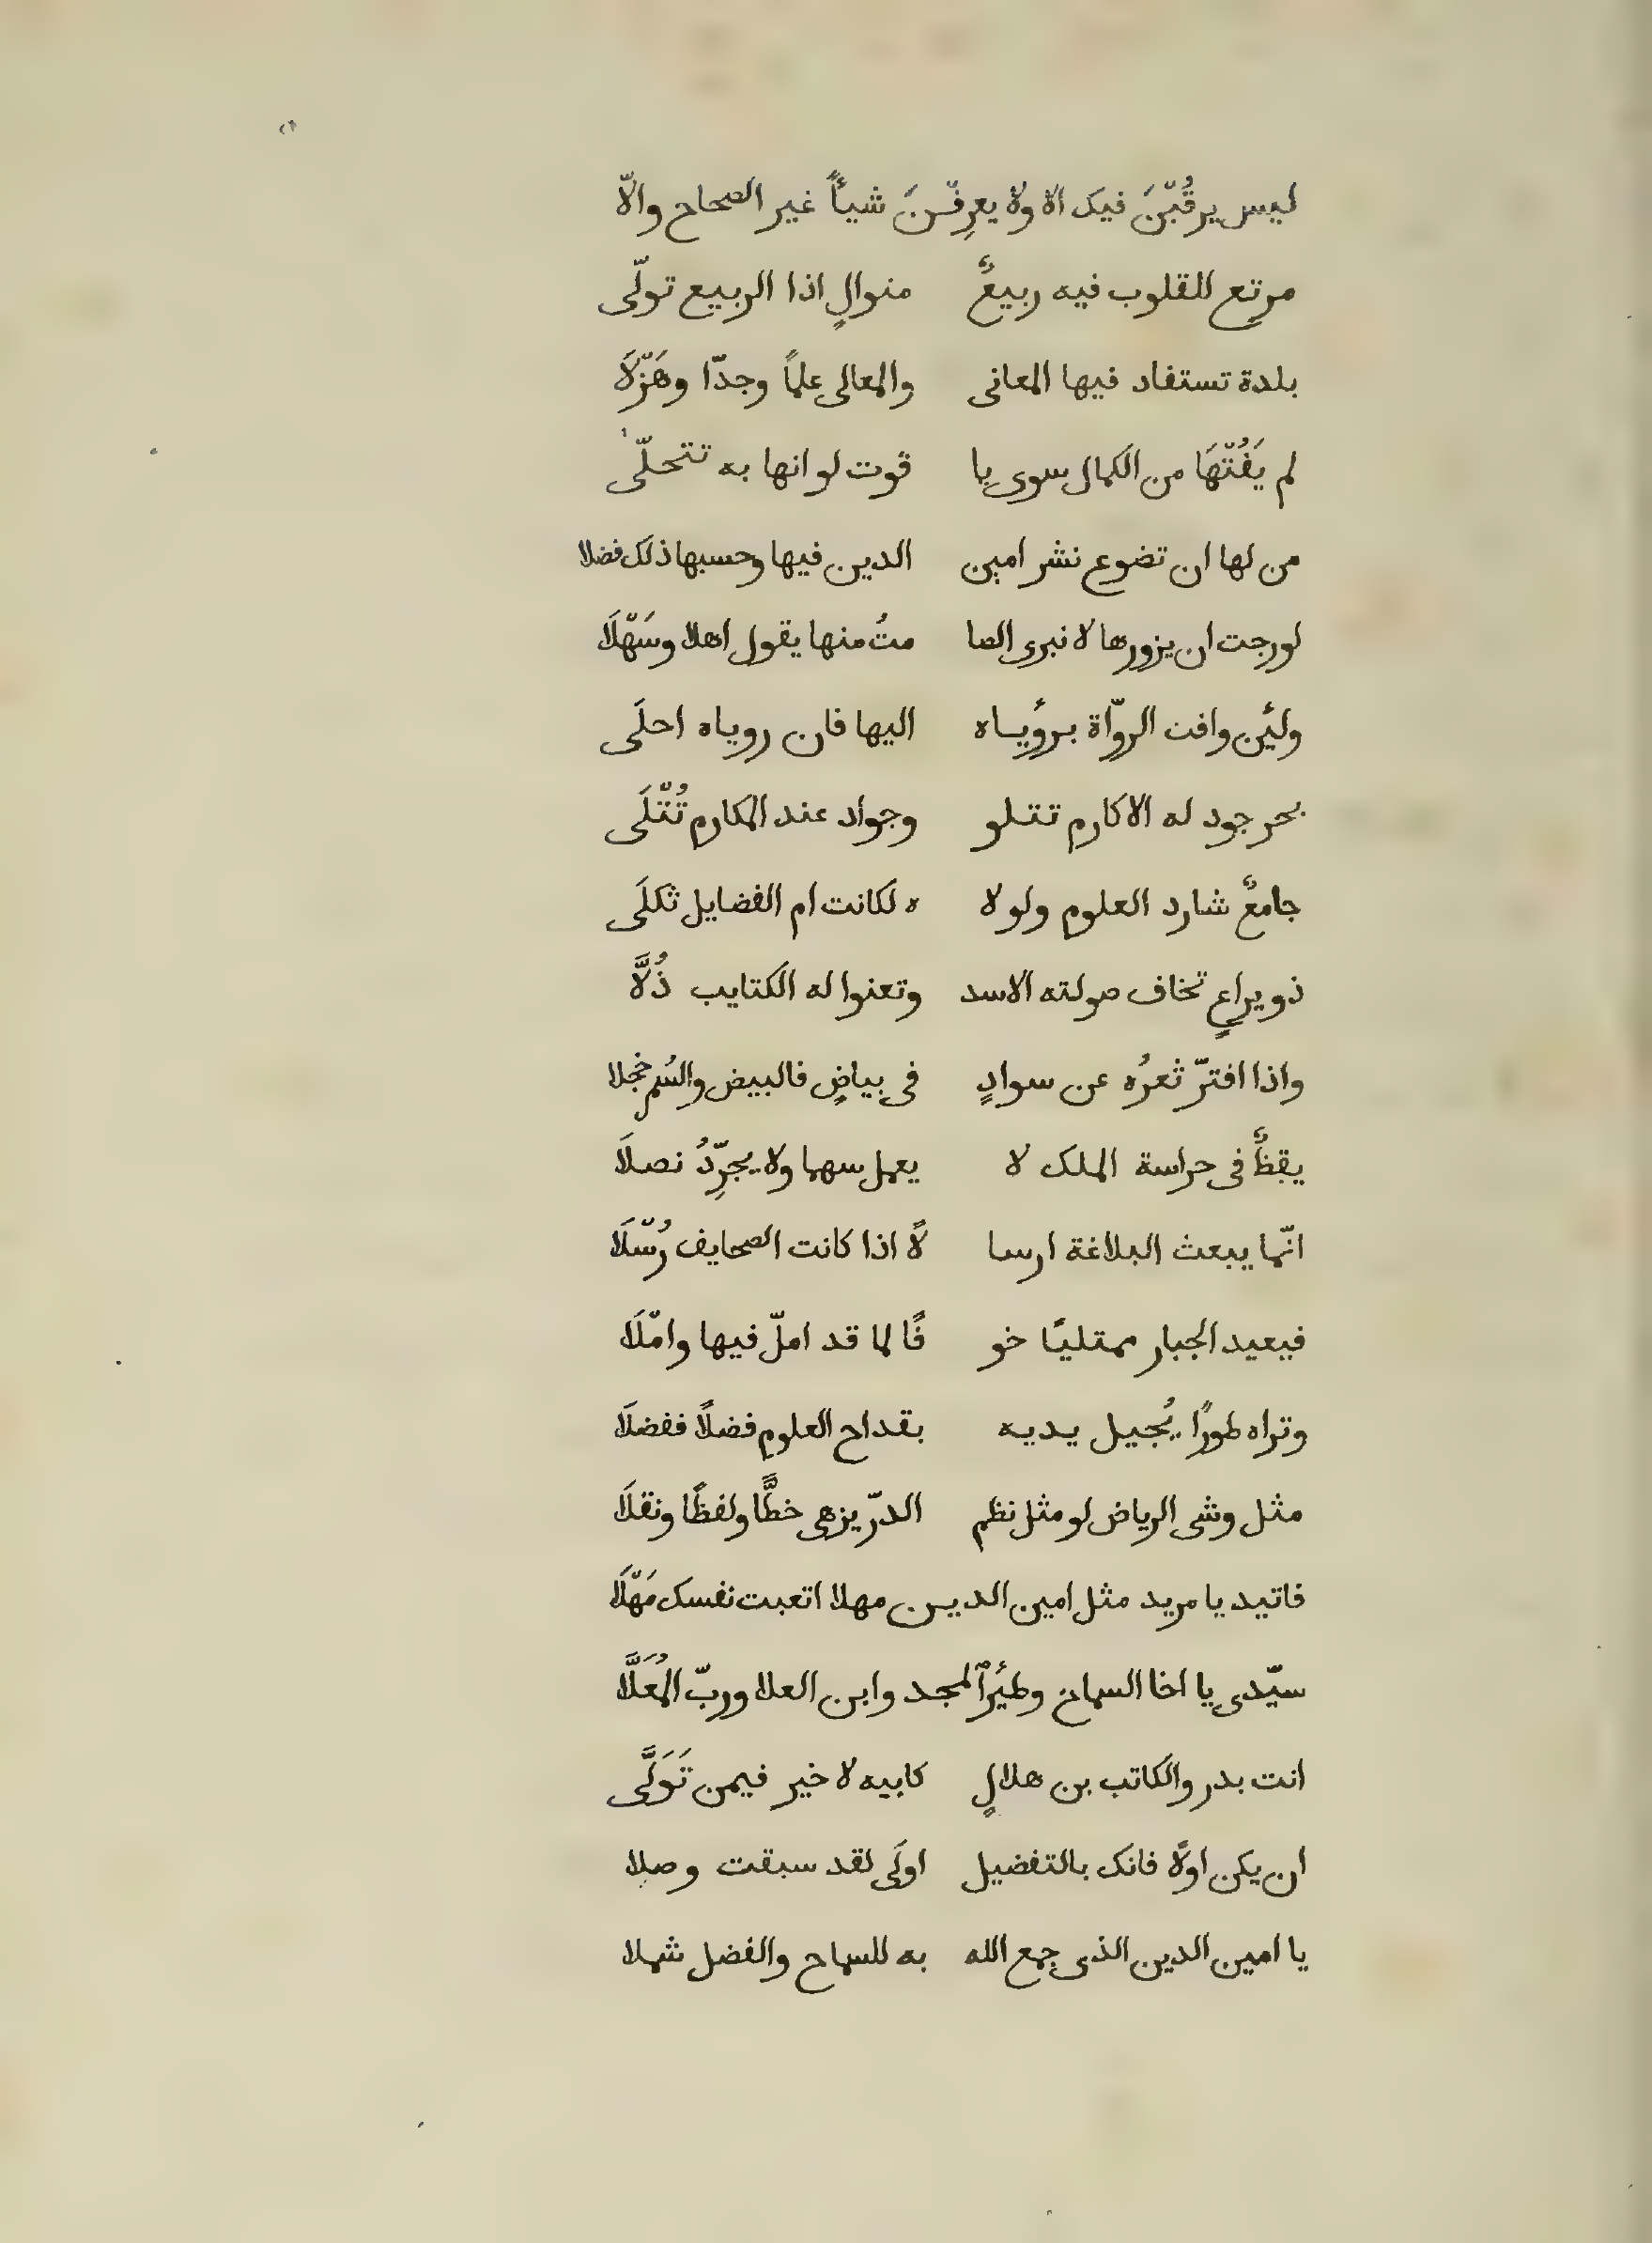 ليس يرقُبّنَ فيك الا ولا يعرِفّنَ شيأً غير الصحاح والّا
مرتع للقلوب فيه ربيعٌ منوالٍ اذا الربيع تولّى
بلدة تستفاد فيها المعانى والمعالى علماً وجدّا وهَزّلَا
لم يَفُتّهَا من الكمال سوى يا قوت لو انها به تتحلّى
من لها ان تضوع نشر امين الدين فيها وحسبها ذلك فضلا
لو رجت ان يزورها لا نبرى الصا متُ منها يقول اهلا وسَهّلَا
ولئن وافت الروّاة برؤياه اليها فان روياه احلَى
بحر جود له الاكارم تتلو وجواد عند المكارم تُتّلَى
جامعٌ شارد العلوم ولولا ه لكانت ام الفضايل ثكلَى
ذو يراعٍ تخاف صولته الاسد وتعنوا له الكتايب ذُلَّا
واذا افترّ ثعرُه عن سوادٍ فى بياضٍ فالبيض والسُمر خجلا
يقظٌ فى حراسة الملك لا يعمل سهما ولا يجرِّدُ نصلَا
انّما يبعث البلاغة ارسا لًا اذا كانت الصحايف رُسّلَا
فيعيد الجبار ممتليًا خو فًا لما قد املّ فيها وامّلَا
وتراه طورًا يُجيل يديه بقداح العلوم فضلًا ففضلَا
مثل وشى الرياض لو مثل نظم الدرّ يزهى خطًّا ولفظًا ونقلَا
فاتيد يا مريد مثل امين الدين مهلا اتعبت نفسك مَهّلَا
سيّدى يا اخا السماح وطئرالمجد وابن العلا وربّ المُعَلَّا
انت بدر والكاتب بن هلالٍ كابيه لا خير فيمن تَوَلَّى
ان يكن اولًا فانك بالتفضيل اولَى لقد سبقت وصلا
يا امين الدين الذى جمع الله به للسماح والفضل شملا